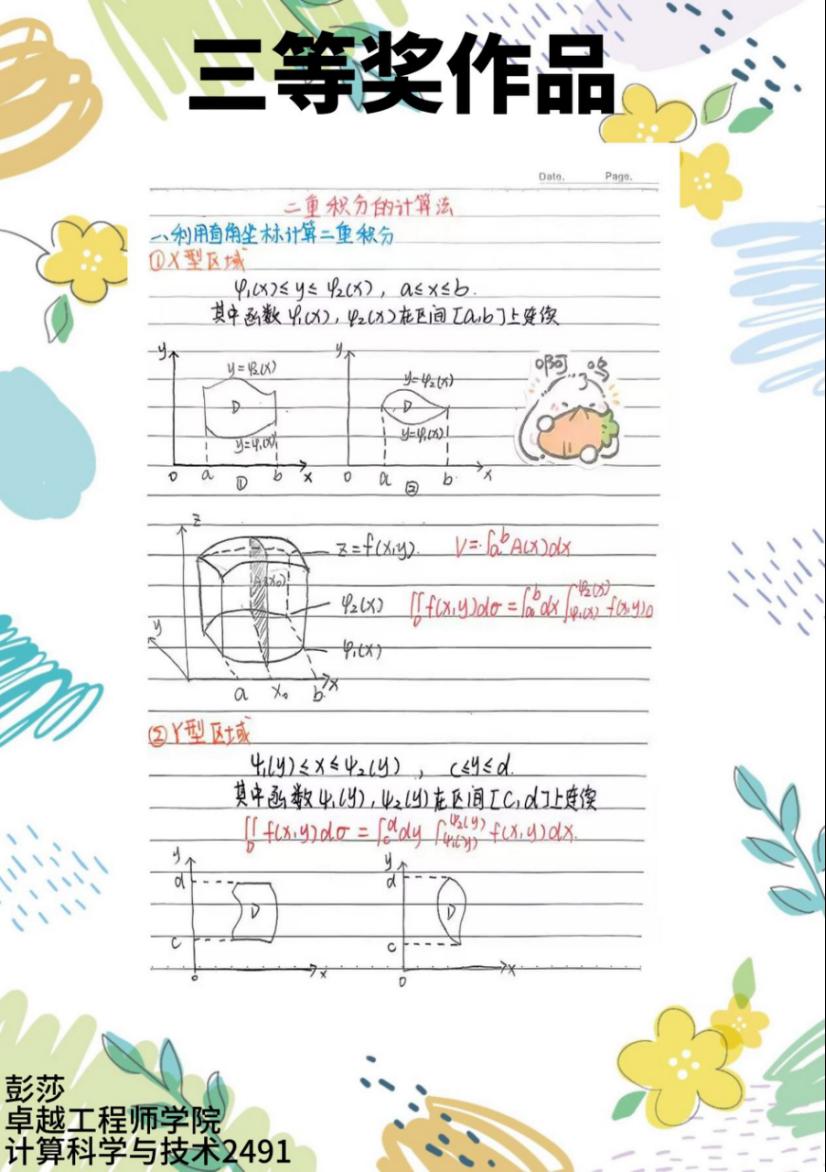 三等奖作品
Date. Page.
二重积分的计算法
一、利用直角坐标计算二重积分
①X型区域
φ₁(x)≤y≤φ₂(x), a≤x≤b.
其中函数φ₁(x), φ₂(x)在区间[a,b]上连续
啊 呜
y y=φ₂(x) D y=φ₁(x) 0 a b x ①
y y=φ₂(x) D y=φ₁(x) 0 a b x ②
z
z=f(x,y). V=∫ₐᵇA(x)dx
A(x₀)
φ₂(x) ∬_D f(x,y)dσ=∫ₐᵇdx∫_{φ₁(x)}^{φ₂(x)}f(x,y)
y φ₁(x)
a x₀ b x
②Y型区域
ψ₁(y)≤x≤ψ₂(y), c≤y≤d.
其中函数ψ₁(y),ψ₂(y)在区间[c,d]上连续
∬_D f(x,y)dσ=∫_c^d dy ∫_{ψ₁(y)}^{ψ₂(y)} f(x,y)dx.
y d D c 0 x
y d D c 0 x
彭莎
卓越工程师学院
计算科学与技术2491